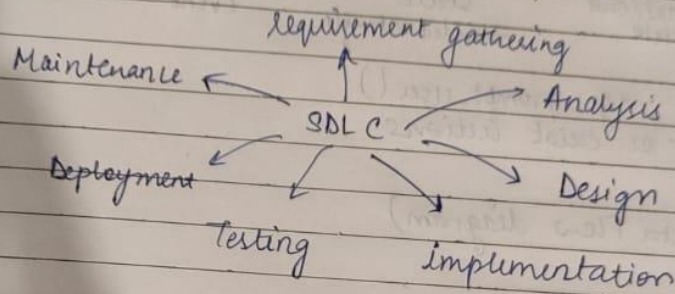 requirement gathering
Maintenance
Analysis
SDLC
Deployment
Design
Testing
implementation